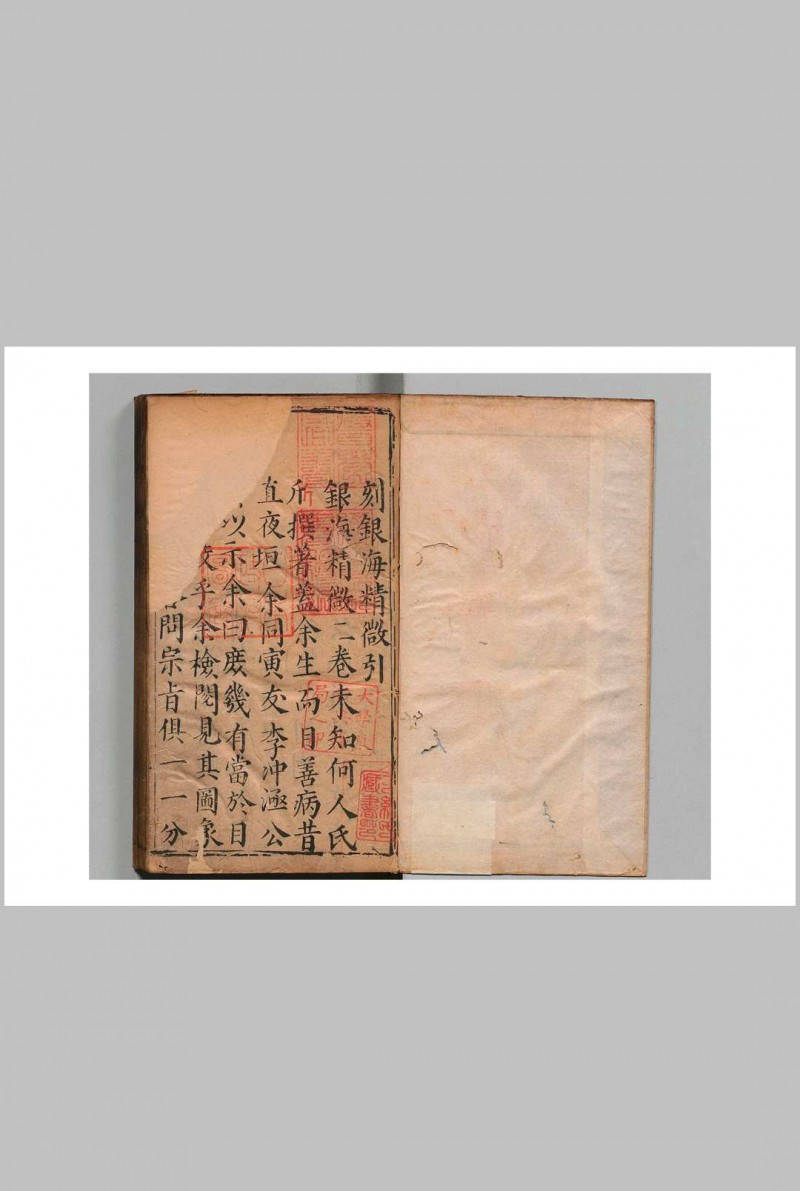 刻銀海精微引
銀海精微二卷未知何人氏
所撰著蓋余生而目善病昔
直夜垣余同寅友李冲涵公
以示余曰庶幾有當於目
乎余檢閱見其圖象
問宗旨俱一一分